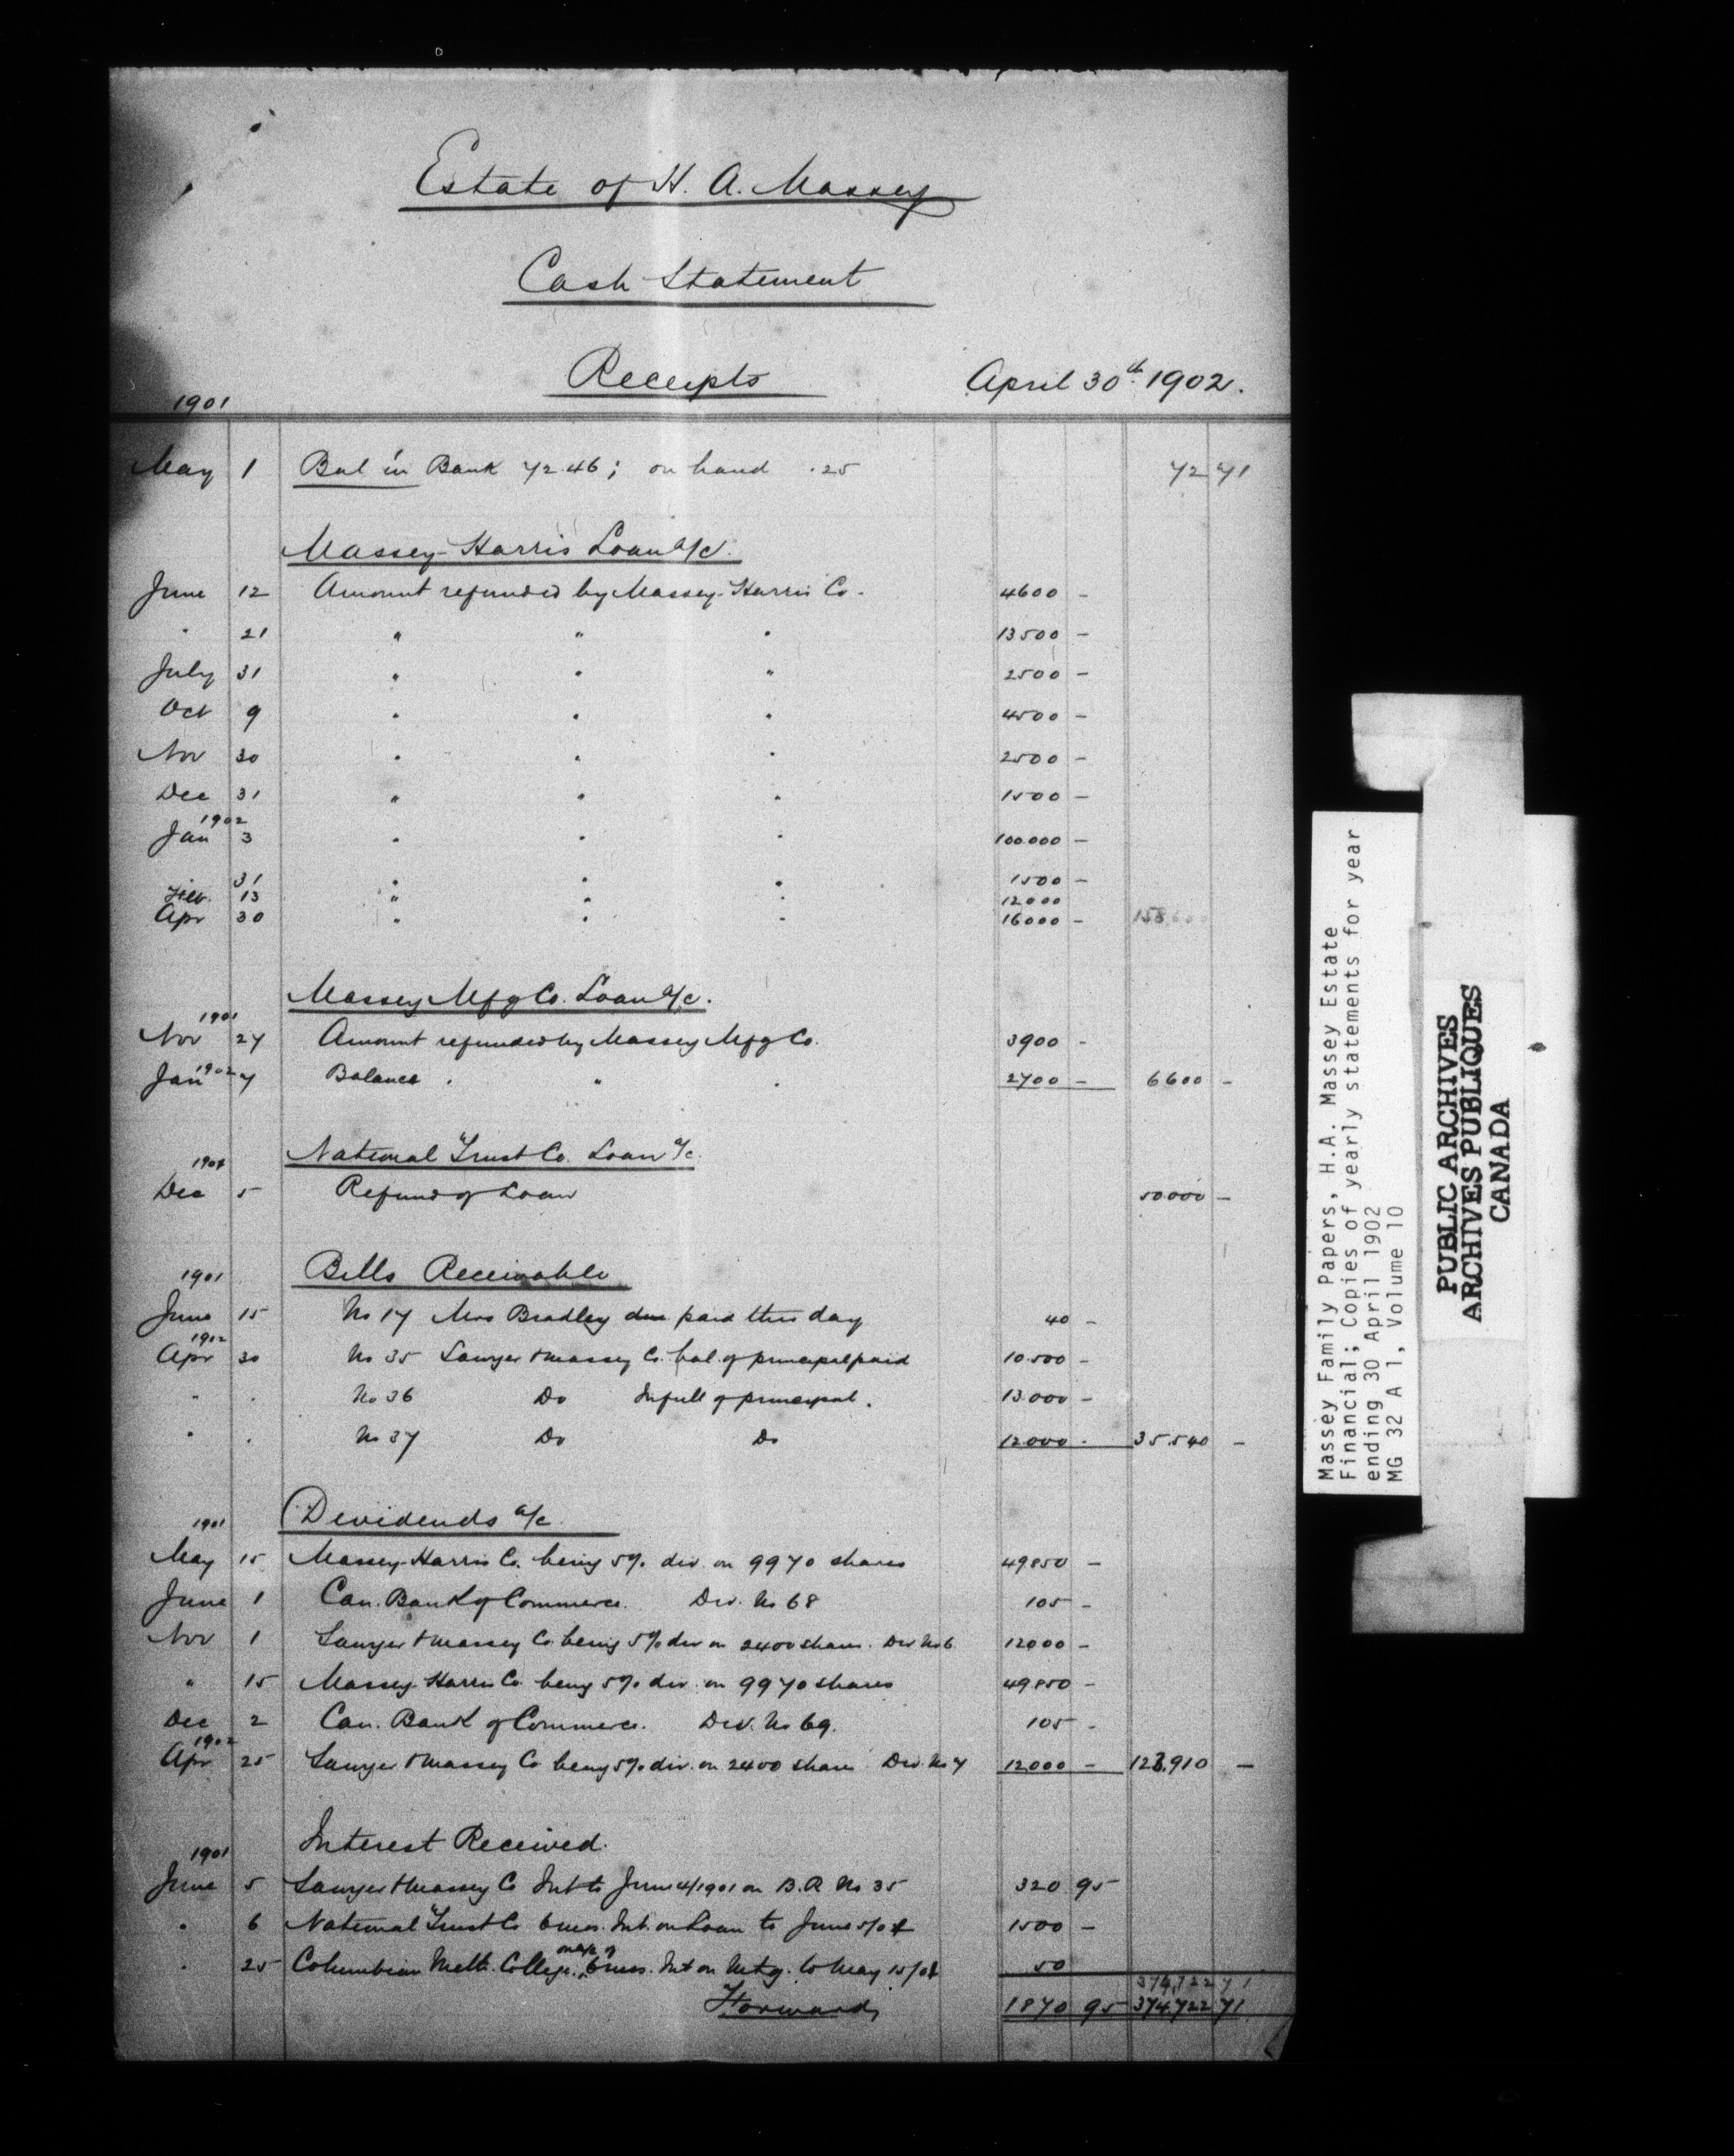 Estate of H. A. Massey
Cash Statement
Receipts April 30th 1902.
1901
May 1 Bal in Bank 72.46; on hand .25 72 71
Massey-Harris Loan a/c.
June 12 Amount refunded by Massey-Harris Co. 4600 -
" 21 " " " 13500 -
July 31 " " " 2500 -
Oct 9 " " " 4500 -
Nov 30 " " " 2500 -
Dec 31 " " " 1500 -
1902
Jan 3 " " " 100.000 -
31 " " " 1500 -
Feb. 13 " " " 12000
Apr 30 " " " 16000 - 158.600
Massey Mfg Co. Loan a/c.
1901
Nov 27 Amount refunded by Massey Mfg Co. 3900 -
1902
Jan 7 Balance " " " 2700 - 6600 -
National Trust Co. Loan a/c.
1901
Dec 5 Refund of Loan 50000 -
Bills Receivable
1901
June 15 No 17 Mrs Bradley due paid this day 40 -
1902
Apr 30 No 35 Sawyer & Massey Co. bal. of principal paid 10.500 -
" " No 36 Do In full of principal. 13.000 -
" " No 37 Do Do 12000 - 35.540 -
Dividends a/c.
1901
May 15 Massey-Harris Co. being 5% div. on 9970 shares 49850 -
June 1 Can. Bank of Commerce. Div. No 68 105 -
Nov 1 Sawyer & Massey Co. being 5% div on 2400 shares. Div No 6 12000 -
" 15 Massey-Harris Co. being 5% div. on 9970 shares 49850 -
Dec 2 Can. Bank of Commerce. Div. No 69. 105 -
1902
Apr 25 Sawyer & Massey Co being 5% div. on 2400 shares Div. No 7 12000 - 123,910 -
Interest Received.
1901
June 5 Sawyer & Massey Co Int to June 4/1901 on B.R. No 35 320 95
" 6 National Trust Co 6 mos. Int. on Loan to June 5/01 1500 -
" 25 Columbian Meth. College. 6 mos. Int on Mtg. to May 15/01 50
374,722 71
Forward, 1870 95 374,722 71
Massey Family Papers, H.A. Massey Estate
Financial; Copies of yearly statements for year
ending 30 April 1902
MG 32 A 1, Volume 10
PUBLIC ARCHIVES
ARCHIVES PUBLIQUES
CANADA